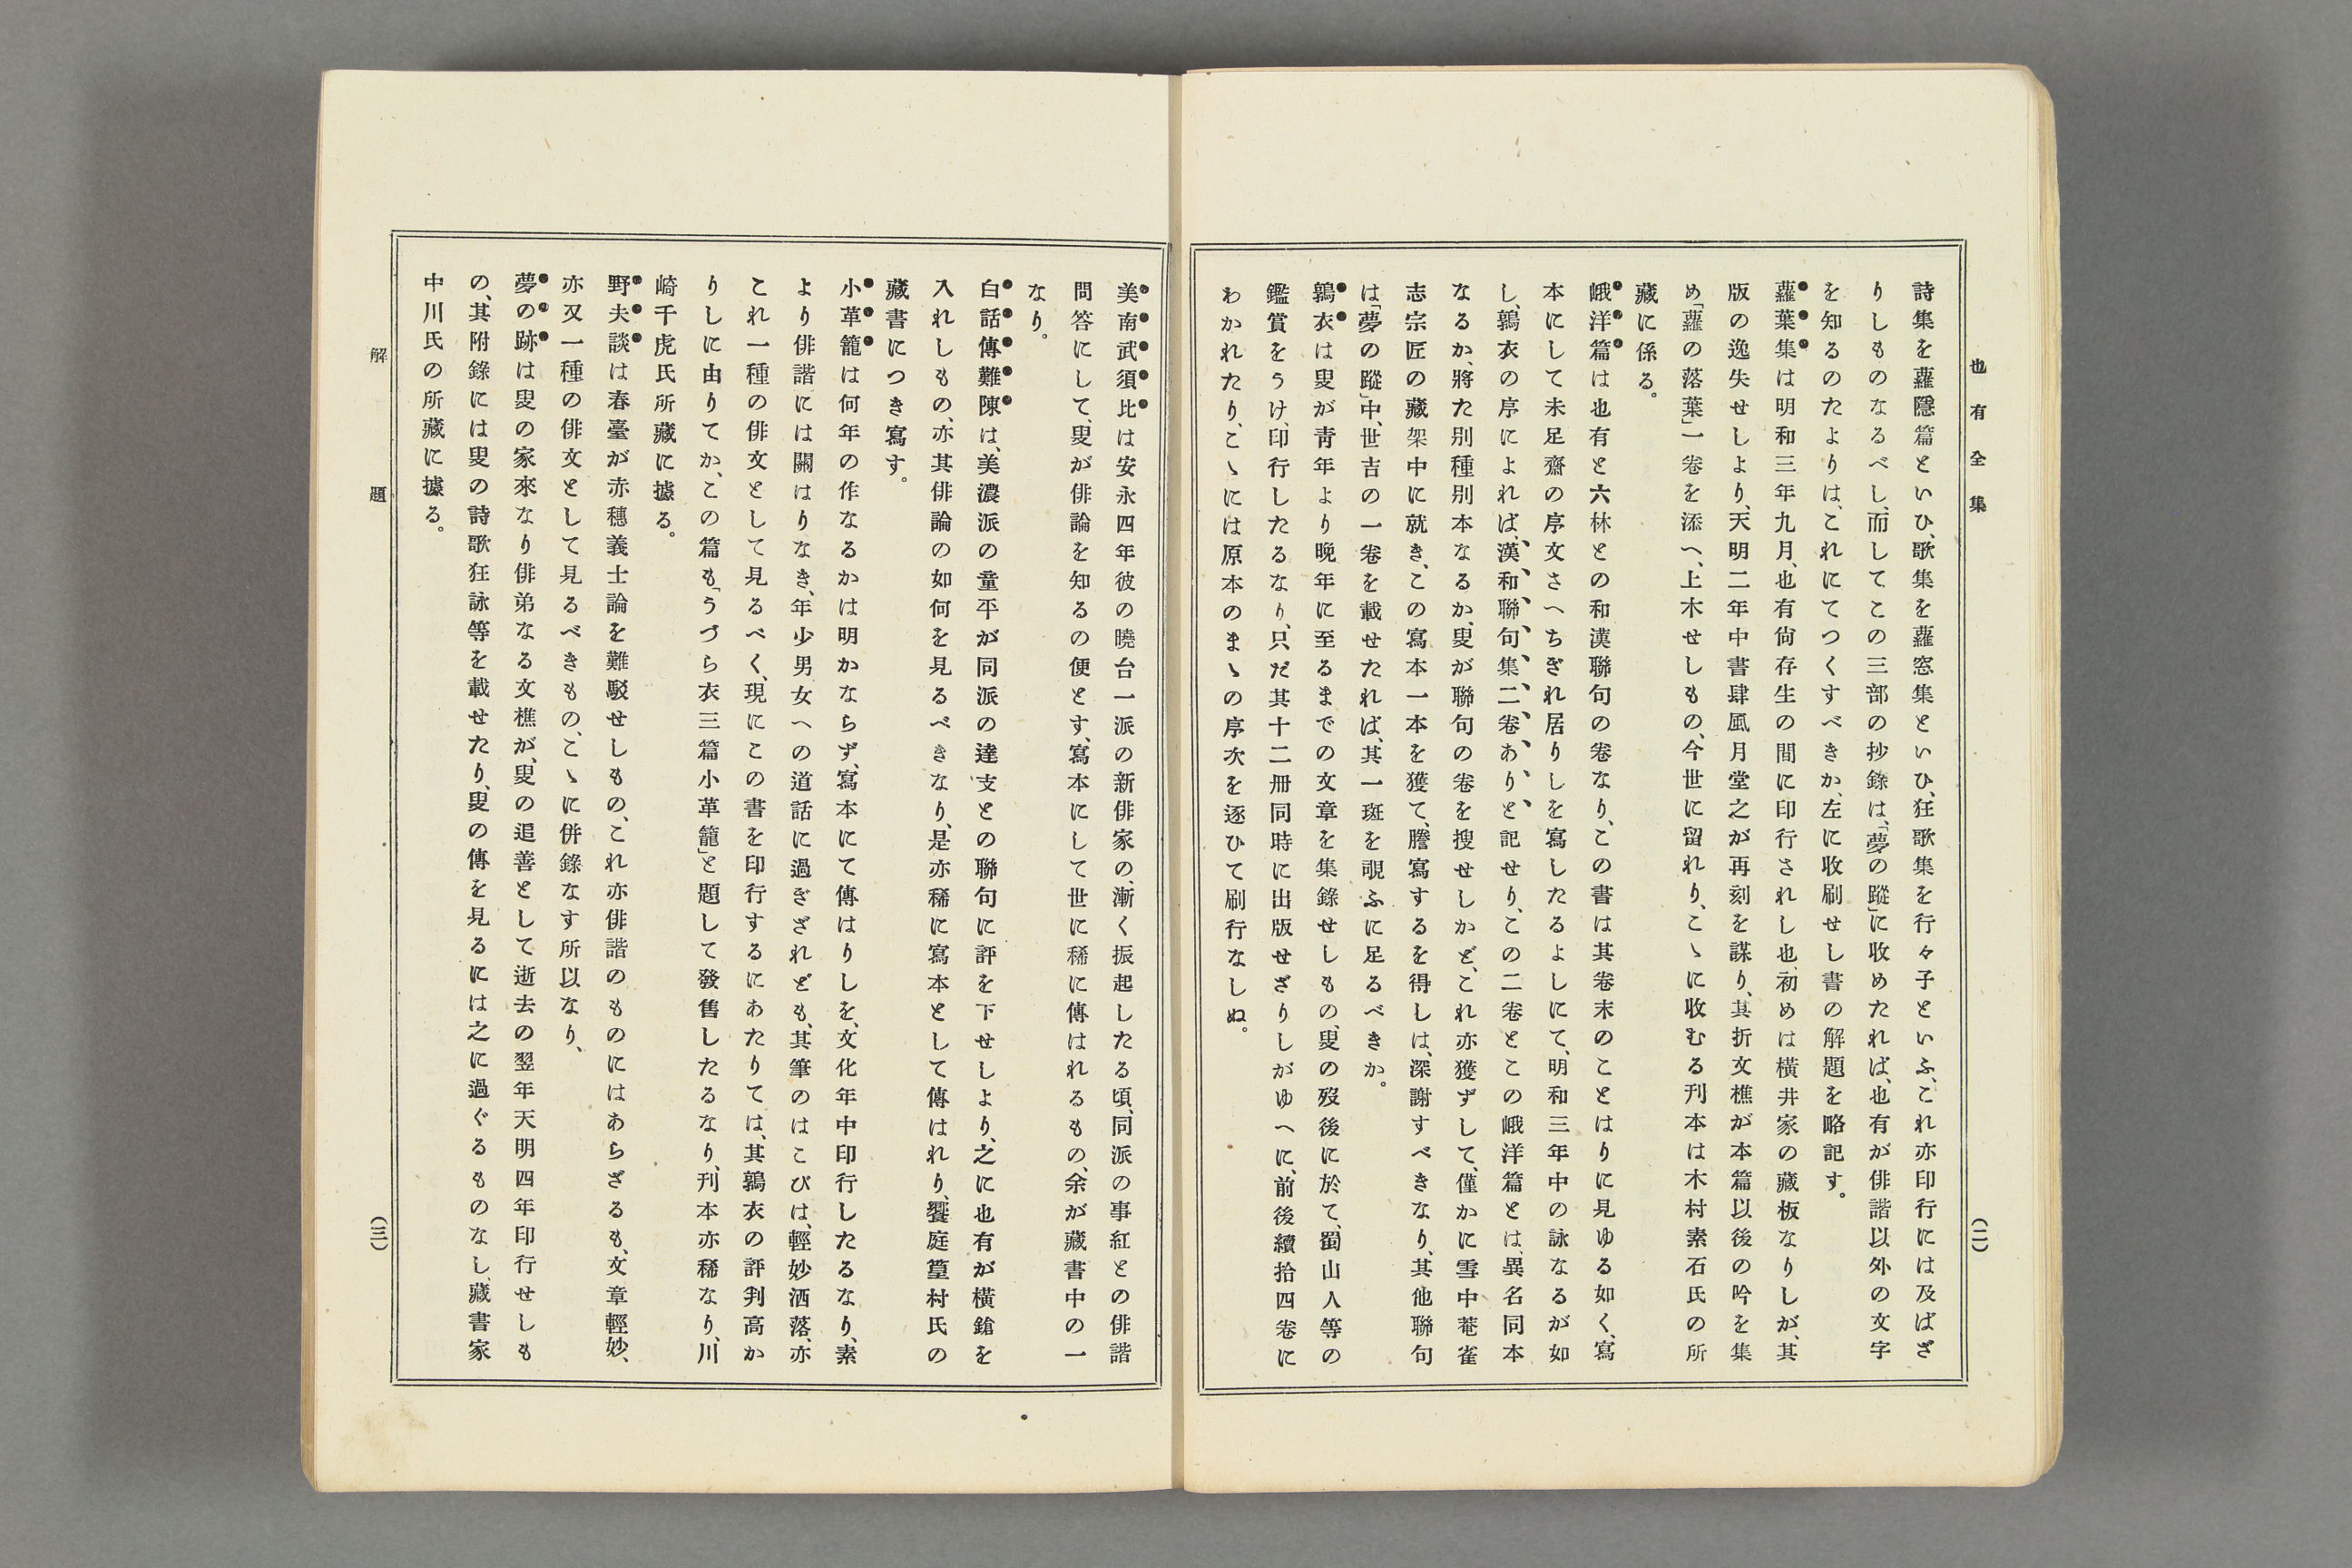 也有全集
(二)
詩集を蘿隱篇といひ、歌集を蘿窓集といひ、狂歌集を行々子といふ、これ亦印行には及ばざ
りしものなるべし、而してこの三部の抄錄は、「夢の蹤」に收めたれば、也有が俳諧以外の文字
を知るのたよりは、これにてつくすべきか、左に收刷せし書の解題を略記す。
蘿葉集は明和三年九月、也有尙存生の間に印行されし也、初めは橫井家の藏板なりしが、其
版の逸失せしより、天明二年中書肆風月堂之が再刻を謀り、其折文樵が本篇以後の吟を集
め「蘿の落葉」一卷を添へ、上木せしもの、今世に留れり、こゝに收むる刊本は木村素石氏の所
藏に係る。
峨洋篇は也有と六林との和漢聯句の卷なり、この書は其卷末のことはりに見ゆる如く、寫
本にして未足齋の序文さへちぎれ居りしを寫したるよしにて、明和三年中の詠なるが如
し、鶉衣の序によれば、漢和聯句集二卷ありと記せり、この二卷とこの峨洋篇とは、異名同本
なるか、將た別種別本なるか、叟が聯句の卷を搜せしかど、これ亦獲ずして、僅かに雪中菴雀
志宗匠の藏架中に就き、この寫本一本を獲て、謄寫するを得しは、深謝すべきなり、其他聯句
は「夢の蹤」中、世吉の一卷を載せたれば、其一斑を覗ふに足るべきか。
鶉衣は叟が靑年より晩年に至るまでの文章を集錄せしもの、叟の歿後に於て、蜀山人等の
鑑賞をうけ、印行したるなり、只だ其十二册同時に出版せざりしがゆへに、前後續拾四卷に
わかれたり、こゝには原本のまゝの序次を逐ひて刷行なしぬ。
美南武須比は安永四年彼の曉台一派の新俳家の、漸く振起したる頃、同派の事紅との俳諧
問答にして、叟が俳論を知るの便とす、寫本にして世に稀に傳はれるもの、余が藏書中の一
なり。
白話傳難陳は、美濃派の童平が同派の達支との聯句に評を下せしより、之に也有が橫鎗を
入れしもの、亦其俳論の如何を見るべきなり、是亦稀に寫本として傳はれり、饗庭篁村氏の
藏書につき寫す。
小革籠は何年の作なるかは明かならず、寫本にて傳はりしを、文化年中印行したるなり、素
より俳諧には關はりなき、年少男女への道話に過ぎざれども、其筆のはこびは、輕妙洒落、亦
これ一種の俳文として見るべく、現にこの書を印行するにあたりては、其鶉衣の評判高か
りしに由りてか、この篇も「うづら衣三篇小革籠」と題して發售したるなり、刊本亦稀なり、川
崎千虎氏所藏に據る。
野夫談は春臺が赤穗義士論を難駁せしもの、これ亦俳諧のものにはあらざるも、文章輕妙、
亦又一種の俳文として見るべきもの、こゝに併錄なす所以なり、
夢の跡は叟の家來なり俳弟なる文樵が、叟の追善として逝去の翌年天明四年印行せしも
の、其附錄には叟の詩歌狂詠等を載せたり、叟の傳を見るには之に過ぐるものなし、藏書家
中川氏の所藏に據る。
解題
(三)